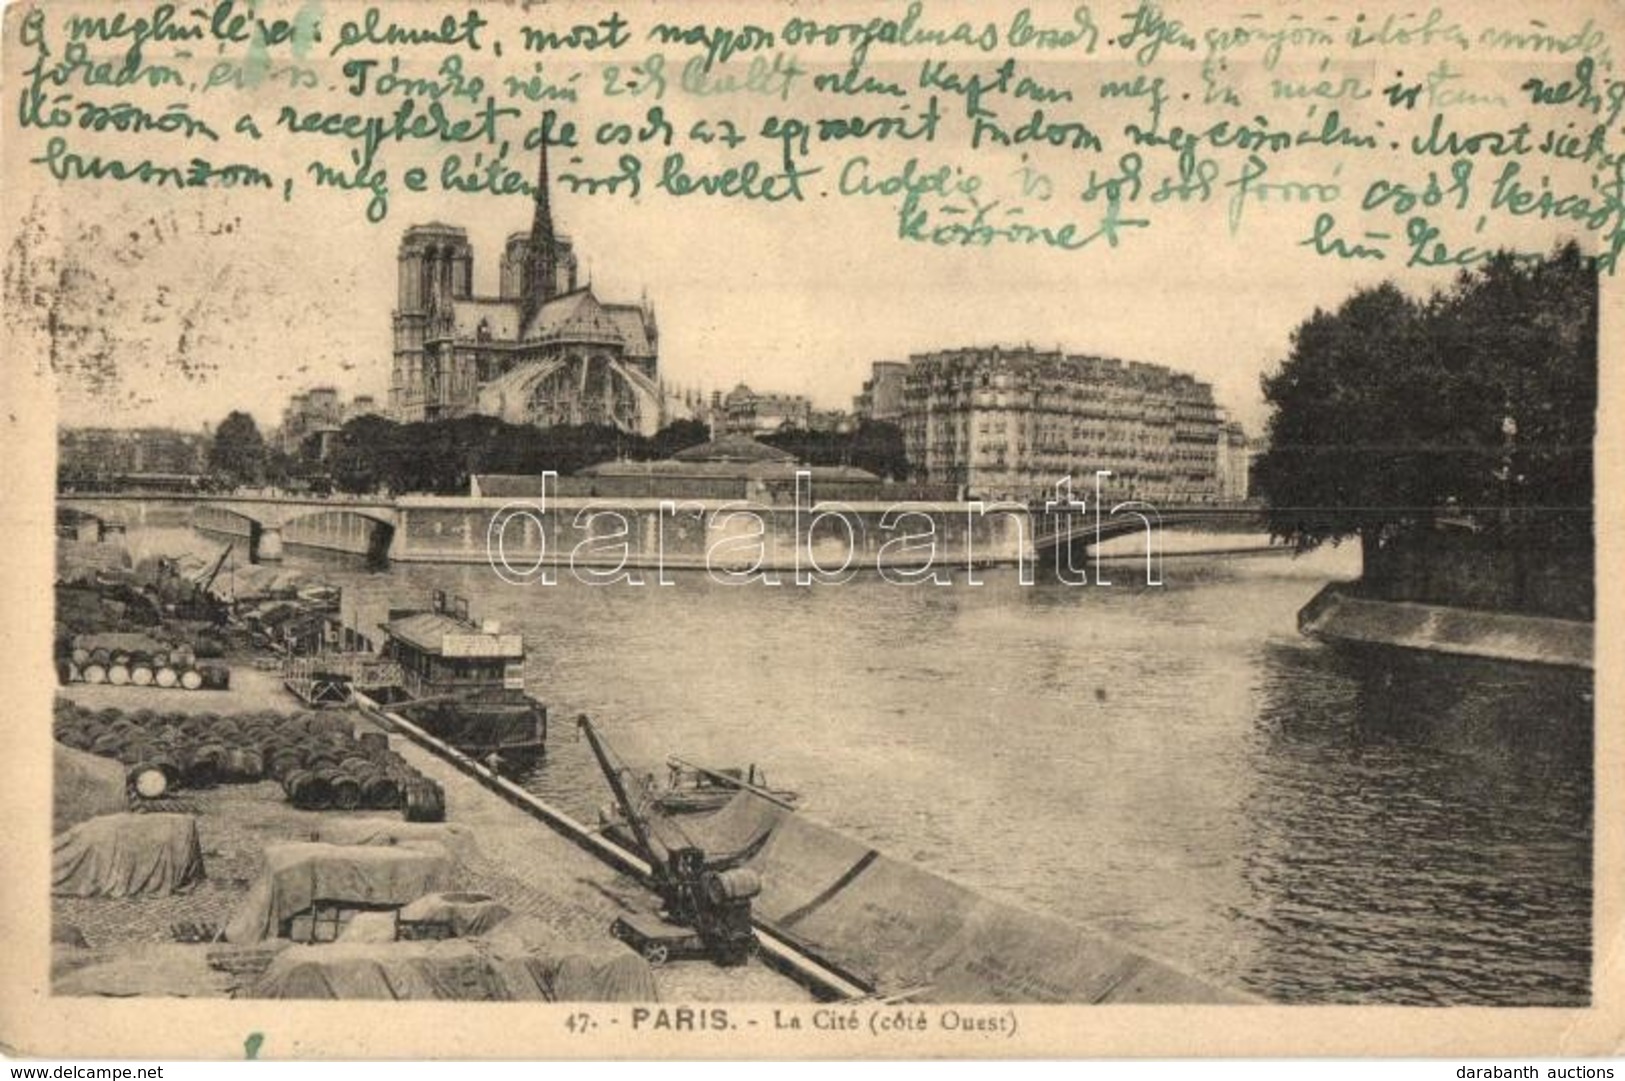 A meghűlésem elmult, most nagyon szorgalmas leszek. Ilyen gyönyörű időben minden
jókedvű, én is. Tőmke néni 2-ik levelét nem kaptam meg. Én már irtam nekig
Köszönöm a recepteket, de csak az egyszerűt tudom megcsinálni. Most siet
busznzom, még e héten irok levelet. Addig is sok sok forró csók, kézcsók
köszönet hű
darabanth
47. - PARIS. - La Cité (côté Ouest)
www.darabanth.com
darabanth auctions